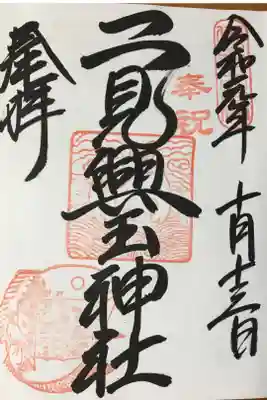 令和元年
十一月十三日
奉祝
二見興玉神社
奉拝